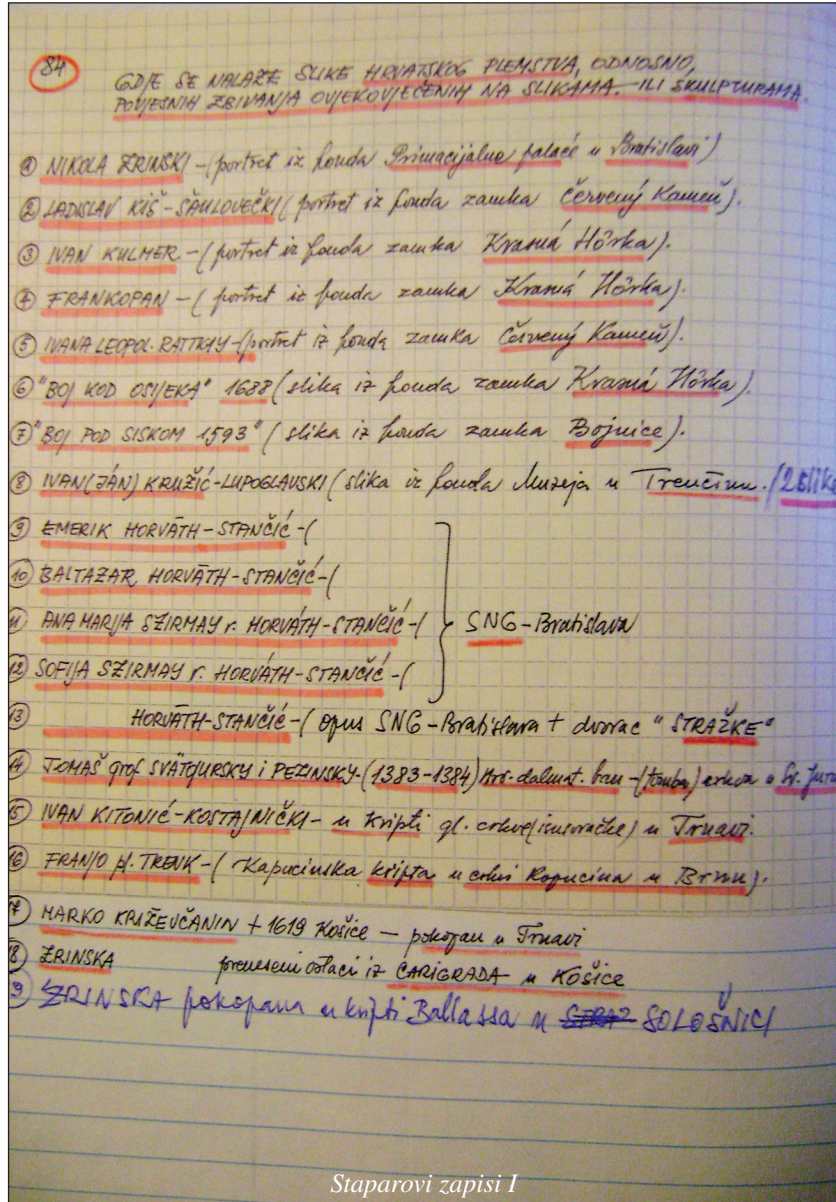 84
GDJE SE NALAZE SLIKE HRVATSKOG PLEMSTVA, ODNOSNO,
POVJESNIH ZBIVANJA OVJEKOVJEČENIH NA SLIKAMA. ILI SKULPTURAMA.
① NIKOLA ZRINSKI - (portret iz fonda Primacijalne palače u Bratislavi)
② LADISLAV KIŠ - ŠAULOVEČKI (portret iz fonda zamka Červený Kameň).
③ IVAN KULMER - (portret iz fonda zamka Krasná Hôrka).
④ FRANKOPAN - (portret iz fonda zamka Krasná Hôrka).
⑤ IVANA LEOPOL. RATTKAY - (portret iz fonda zamka Červený Kameň).
⑥ "BOJ KOD OSIJEKA" 1688 (slika iz fonda zamka Krasná Hôrka).
⑦ "BOJ POD SISKOM 1593" (slika iz fonda zamka Bojnice).
⑧ IVAN (JÁN) KRUŽIĆ - LUPOGLAVSKI (slika iz fonda Muzeja u Trenčinu. /2 slike
⑨ EMERIK HORVÁTH - STANČIĆ - (
⑩ BALTAZAR HORVÁTH - STANČIĆ - (
⑪ ANA MARIJA SZIRMAY r. HORVÁTH - STANČIĆ - ( SNG - Bratislava
⑫ SOFIJA SZIRMAY r. HORVÁTH - STANČIĆ - (
⑬ HORVÁTH - STANČIĆ - (opus SNG - Bratislava + dvorac "STRAŽKE"
⑭ TOMAŠ grof SVÄTOJURSKY i PEZINSKY. (1383-1384) Hrv. dalmat. ban - (tomba) crkva u Sv. Jura
⑮ IVAN KITONIĆ - KOSTAJNIČKI - u kripti gl. crkve (isusovačke) u Trnavi.
⑯ FRANJO pl. TRENK - (Kapucinska kripta u crkvi Kapucina u Brnu).
17 MARKO KRIŽEVČANIN + 1619 Košice — pokopan u Trnavi
18 ZRINSKA preneseni ostaci iz CARIGRADA u KOŠICE
9 ZRINSKA pokopana u kripti Ballassa u SOLOŠNICI
Staparovi zapisi I